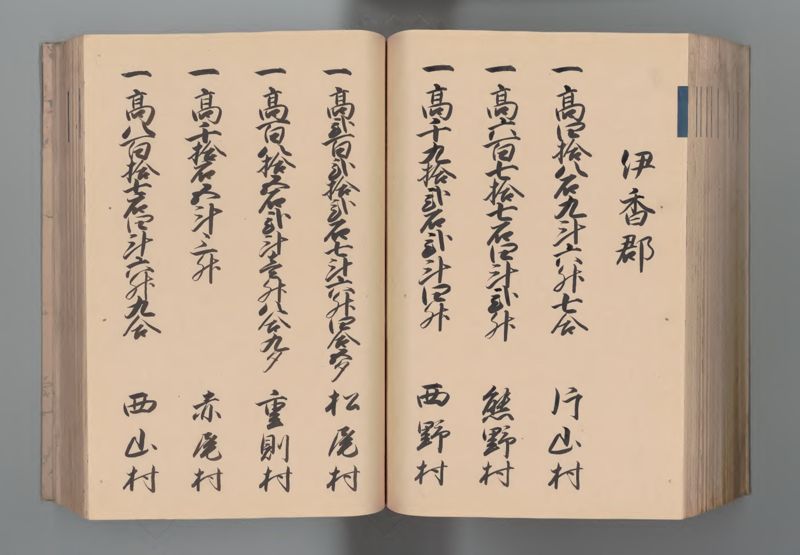 伊香郡
一高四拾八石九斗六升七合 片山村
一高六百七拾七石四斗弐升 熊野村
一高千九拾弐石弐斗四升 西野村
一高弐百弐拾弐石七斗六升四合五夕 松尾村
一高百八拾五石弐斗壱升八合九夕 重則村
一高千拾石五斗三升 赤尾村
一高八百拾七石四斗六升九合 西山村